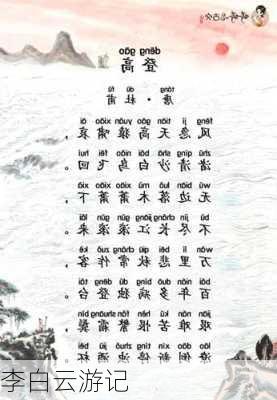 dēng gāo
登高
táng dù fǔ
唐·杜甫
fēng jí tiān gāo yuán xiào āi
风急天高猿啸哀，
zhǔ qīng shā bái niǎo fēi huí
渚清沙白鸟飞回。
wú biān luò mù xiāo xiāo xià
无边落木萧萧下，
bú jìn cháng jiāng gǔn gǔn lái
不尽长江滚滚来。
wàn lǐ bēi qiū cháng zuò kè
万里悲秋常作客，
bǎi nián duō bìng dú dēng tái
百年多病独登台。
jiān nán kǔ hèn fán shuāng bìn
艰难苦恨繁霜鬓，
liáo dǎo xīn tíng zhuó jiǔ bēi
潦倒新停浊酒杯。
李白云游记